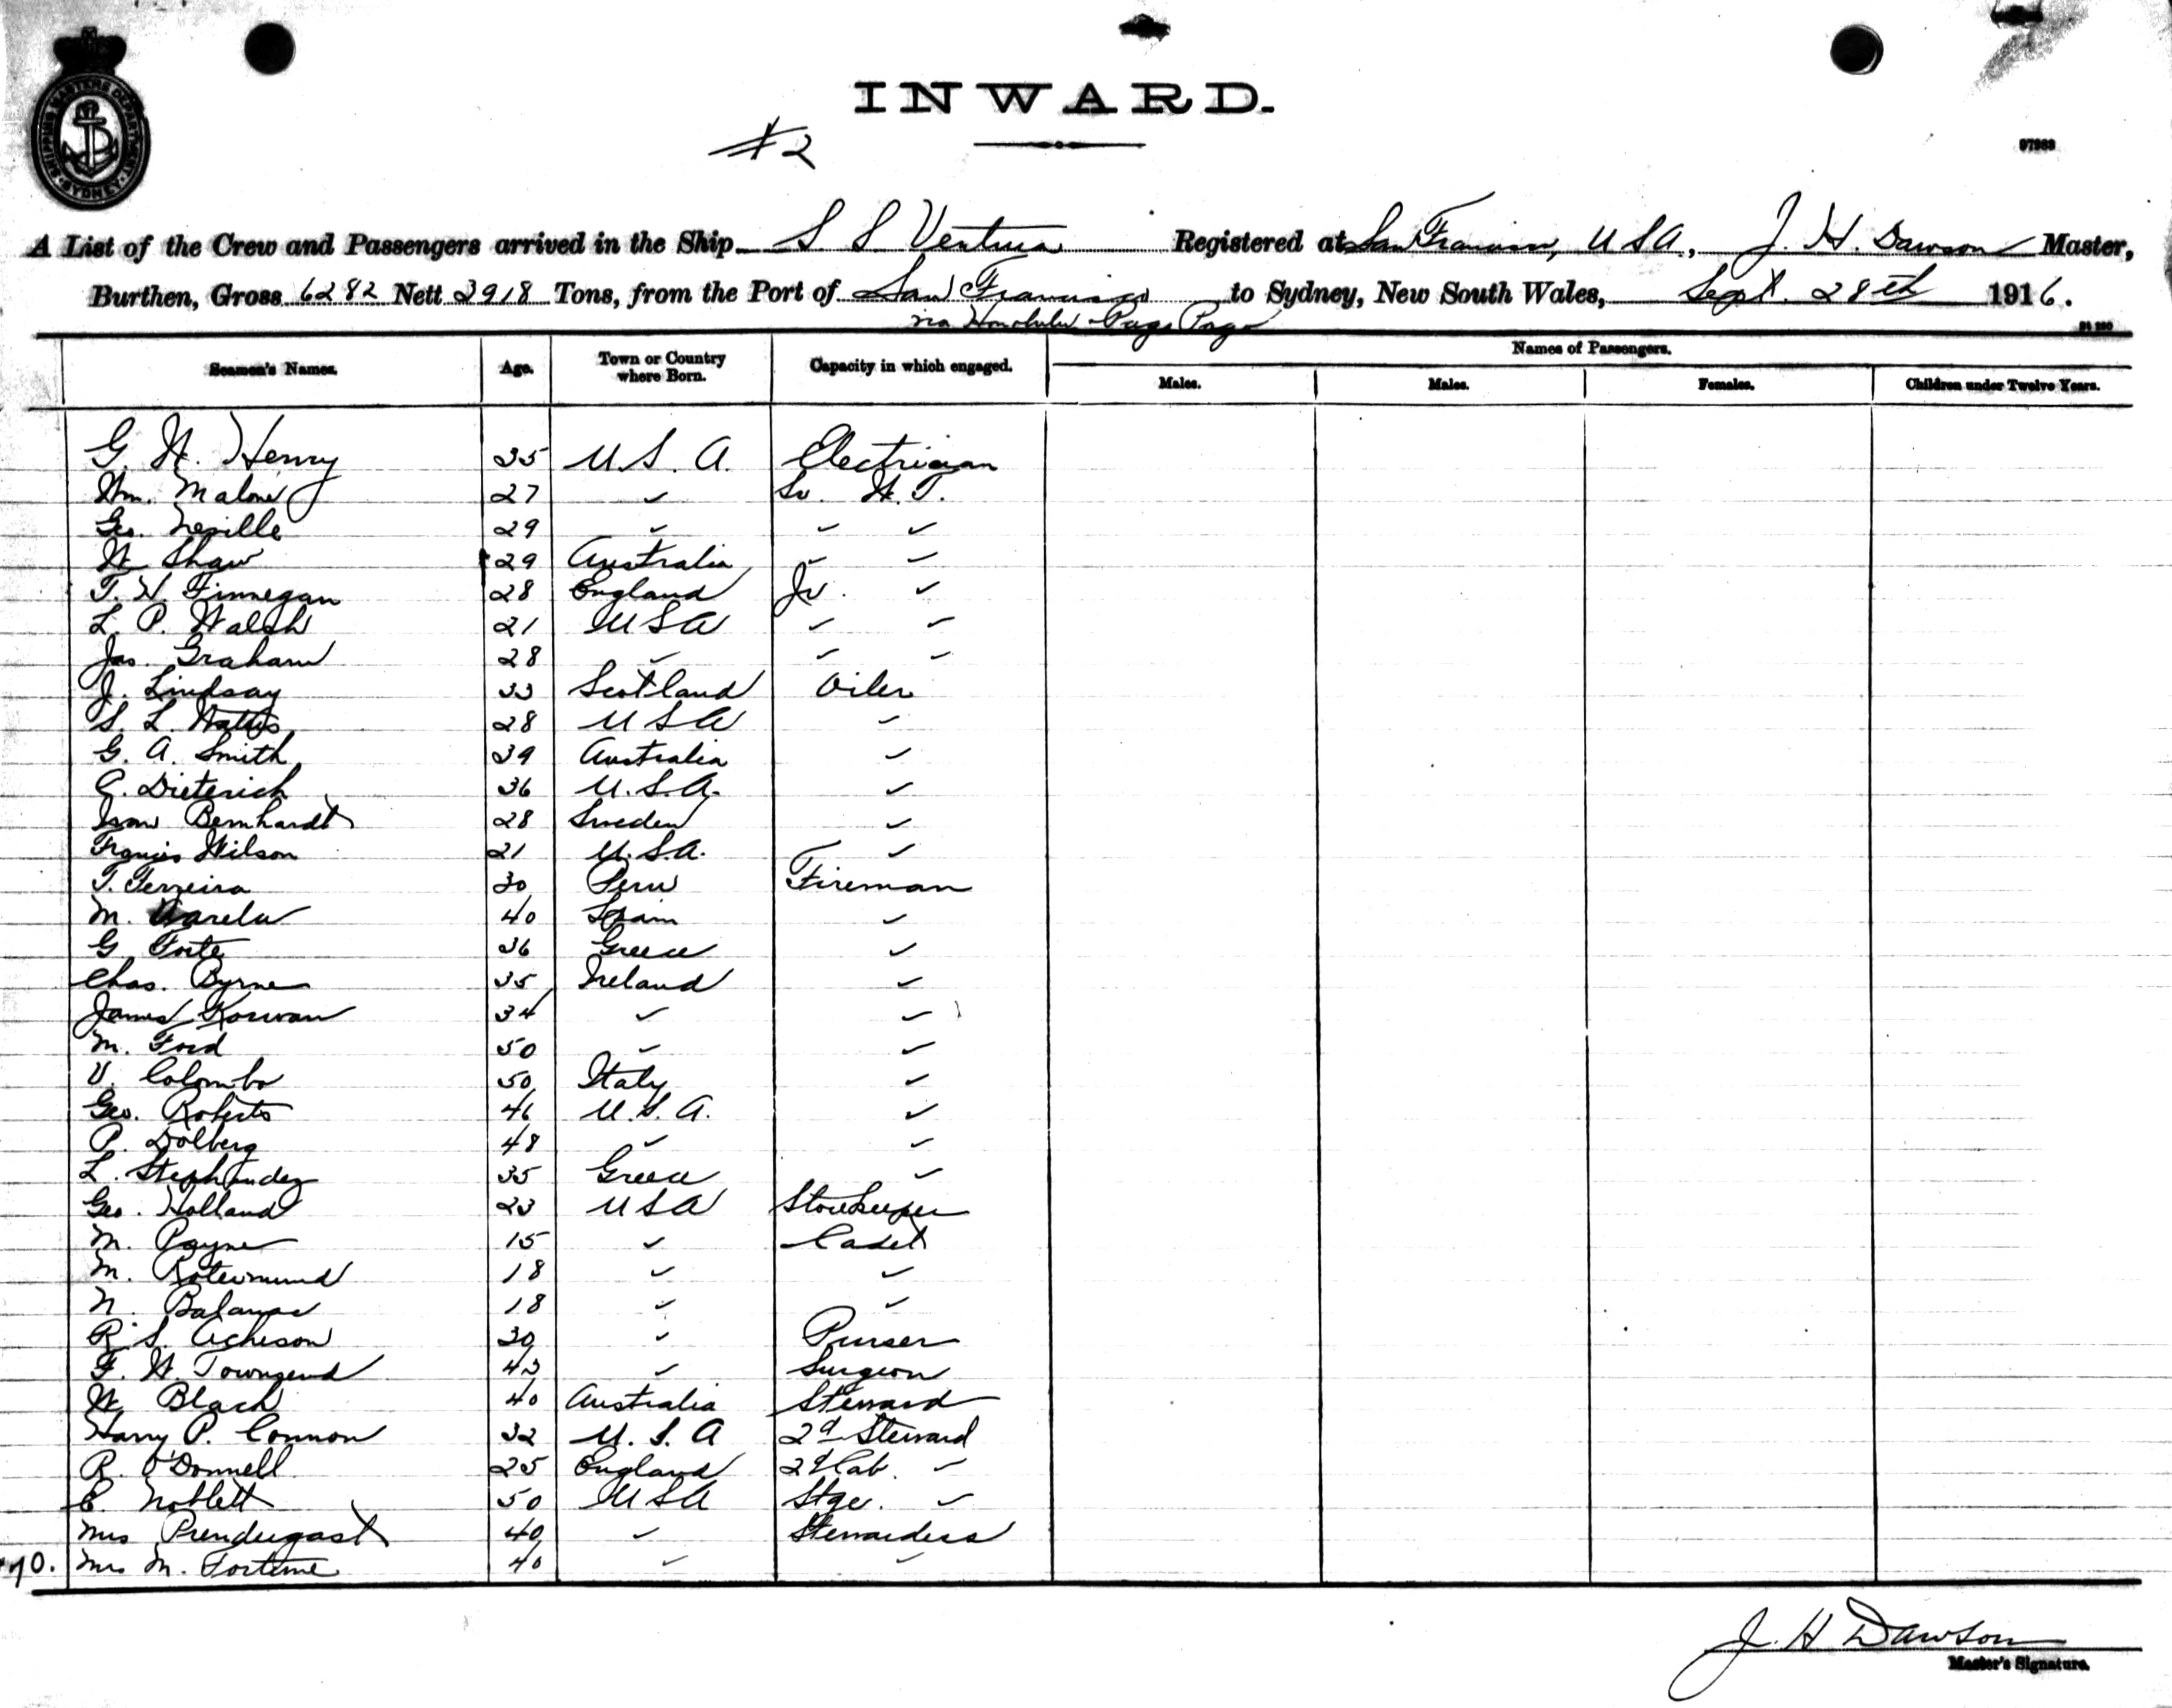 SHIPPING MASTERS DEPARTMENT SYDNEY
INWARD.
#2
97983
A List of the Crew and Passengers arrived in the Ship S S Ventura Registered at San Francisco, USA., J. H. Dawson Master,
Burthen, Gross 6282 Nett 3918 Tons, from the Port of San Francisco to Sydney, New South Wales, Sept. 28th 1916.
via Honolulu - Pago Pago
Seamen's Names. Age. Town or Country where Born. Capacity in which engaged. Names of Passengers.
Males. Males. Females. Children under Twelve Years.
G. W. Henry 35 U.S.A. Electrician
Wm. Malone 27 " Sr. W.T.
Geo. Neville 29 " " "
W Shaw 29 Australia " "
T. W. Finnegan 28 England Jr. "
L. P. Walsh 21 USA " "
Jas. Graham 28 " " "
J. Lindsay 33 Scotland Oiler
S. L. Watts 28 USA "
G. A. Smith 39 Australia "
C. Dieterich 36 U.S.A. "
Bernhardt 28 Sweden "
Francis Wilson 21 U.S.A. "
T. Ferreira 30 Peru Fireman
M. Varela 40 Spain "
G. Forte 36 Greece "
Chas. Byrne 35 Ireland "
James Korwan 34 " "
M. Ford 50 " "
V. Colombo 50 Italy "
Geo. Roberts 46 U.S.A. "
P. Dolberg 48 " "
L. 35 Greece "
Geo. Holland 23 USA Storekeeper
M. Payne 15 " Cadet
M. Rotermund 18 " "
N. 18 " "
R. S. Acheson 30 " Purser
F. W. Townsend 43 " Surgeon
W Black 40 Australia Steward
Harry P. Connon 32 U.S.A 2d Steward
R. O'Donnell 25 England 2d Cab. "
C. Noblett 50 USA Stge. "
Mrs Prendergast 40 " Stewardess
70. Mrs M. Fortune 40 " "
J. H Dawson
Master's Signature.